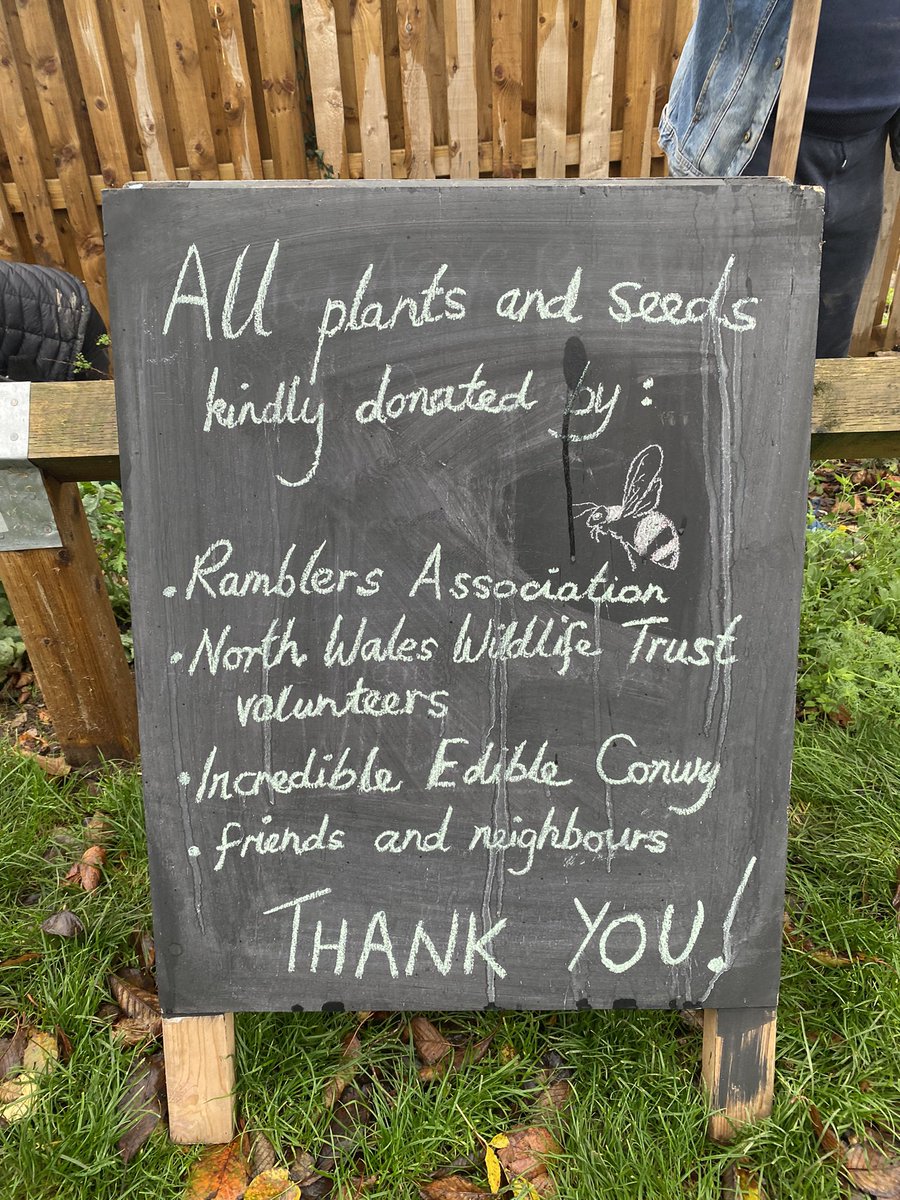 All plants and seeds
kindly donated by :
• Ramblers Association
• North Wales Wildlife Trust
volunteers
• Incredible Edible Conwy
• friends and neighbours
THANK YOU!